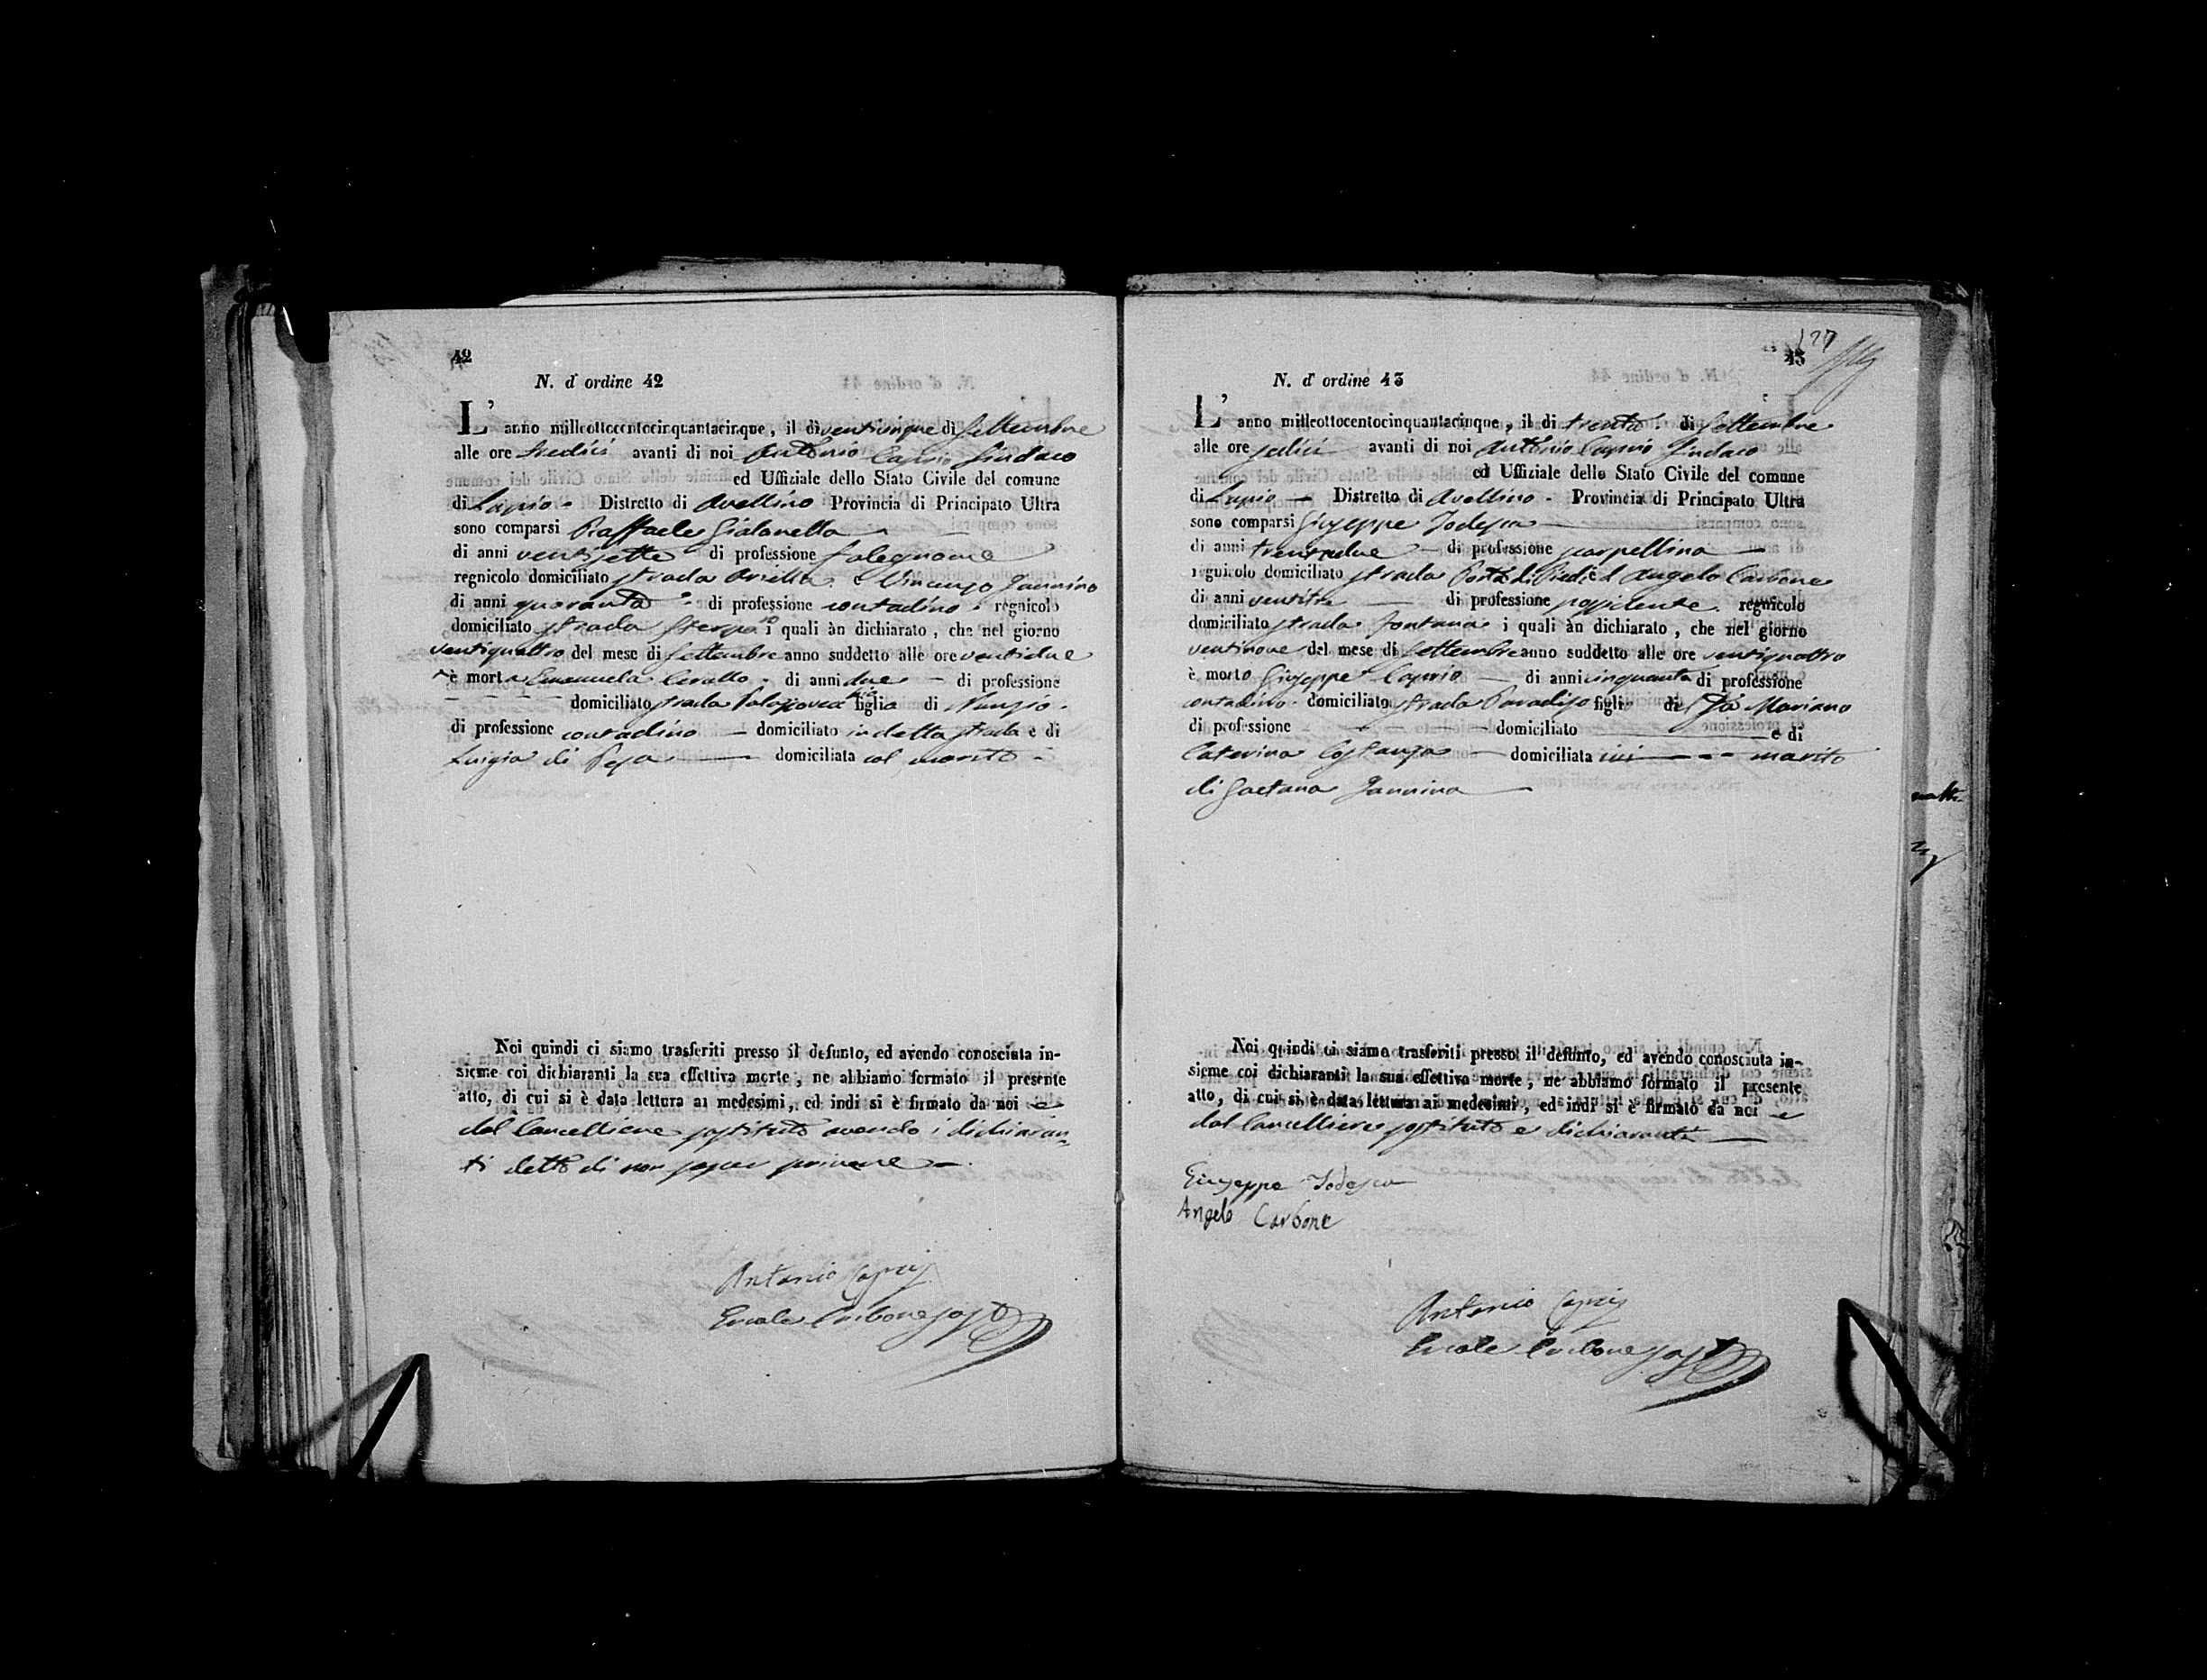 42
N. d' ordine 42
L' anno milleottocentocinquantacinque, il dì venticinque di Settembre
alle ore tredici avanti di noi Antonio Caprio Sindaco
ed Uffiziale dello Stato Civile del comune
di Lapio Distretto di Avellino Provincia di Principato Ultra
sono comparsi Raffaele Gialanella
di anni ventisette di professione falegname
regnicolo domiciliato strada Ariella e Vincenzo Jannino
di anni quaranta di professione contadino regnicolo
domiciliato strada i quali àn dichiarato, che nel giorno
ventiquattro del mese di Settembre anno suddetto alle ore ventidue
è morta Emanuela Cerullo di anni due di professione
domiciliato strada figlia di Nunzio
di professione contadino domiciliato in detta strada e di
Luigia di domiciliata col marito
Noi quindi ci siamo trasferiti presso il defunto, ed avendo conosciuta in-
sieme coi dichiaranti la sua effettiva morte, ne abbiamo formato il presente
atto, di cui si è data lettura ai medesimi, ed indi si è firmato da noi e
dal Cancelliere sostituto avendo i dichiaran-
ti detto di non saper scrivere
Antonio Caprio
Ercole Carbone sost
127
43
N. d' ordine 43
L' anno milleottocentocinquantacinque, il di trenta di Settembre
alle ore sedici avanti di noi Antonio Caprio Sindaco
ed Uffiziale dello Stato Civile del comune
di Lapio Distretto di Avellino Provincia di Principato Ultra
sono comparsi Giuseppe Todesca
di anni trentadue di professione scarpellino
regnicolo domiciliato strada Porta di Piedi ed Angelo Carbone
di anni ventitre di professione possidente regnicolo
domiciliato strada Fontana i quali àn dichiarato, che nel giorno
ventinove del mese di Settembre anno suddetto alle ore ventiquattro
è morto Giuseppe Caprio di anni cinquanta di professione
contadino domiciliato strada Paradiso figlio del fu Mariano
di professione domiciliato e di
Caterina Costanza domiciliata ivi marito
di Gaetana Jannino
Noi quindi ci siamo trasferiti presso il defunto, ed avendo conosciuta in-
sieme coi dichiaranti la sua effettiva morte, ne abbiamo formato il presente
atto, di cui si è data lettura ai medesimi, ed indi si è firmato da noi e
dal Cancelliere sostituto e dichiaranti
Giuseppe Todesca
Angelo Carbone
Antonio Caprio
Ercole Carbone sost